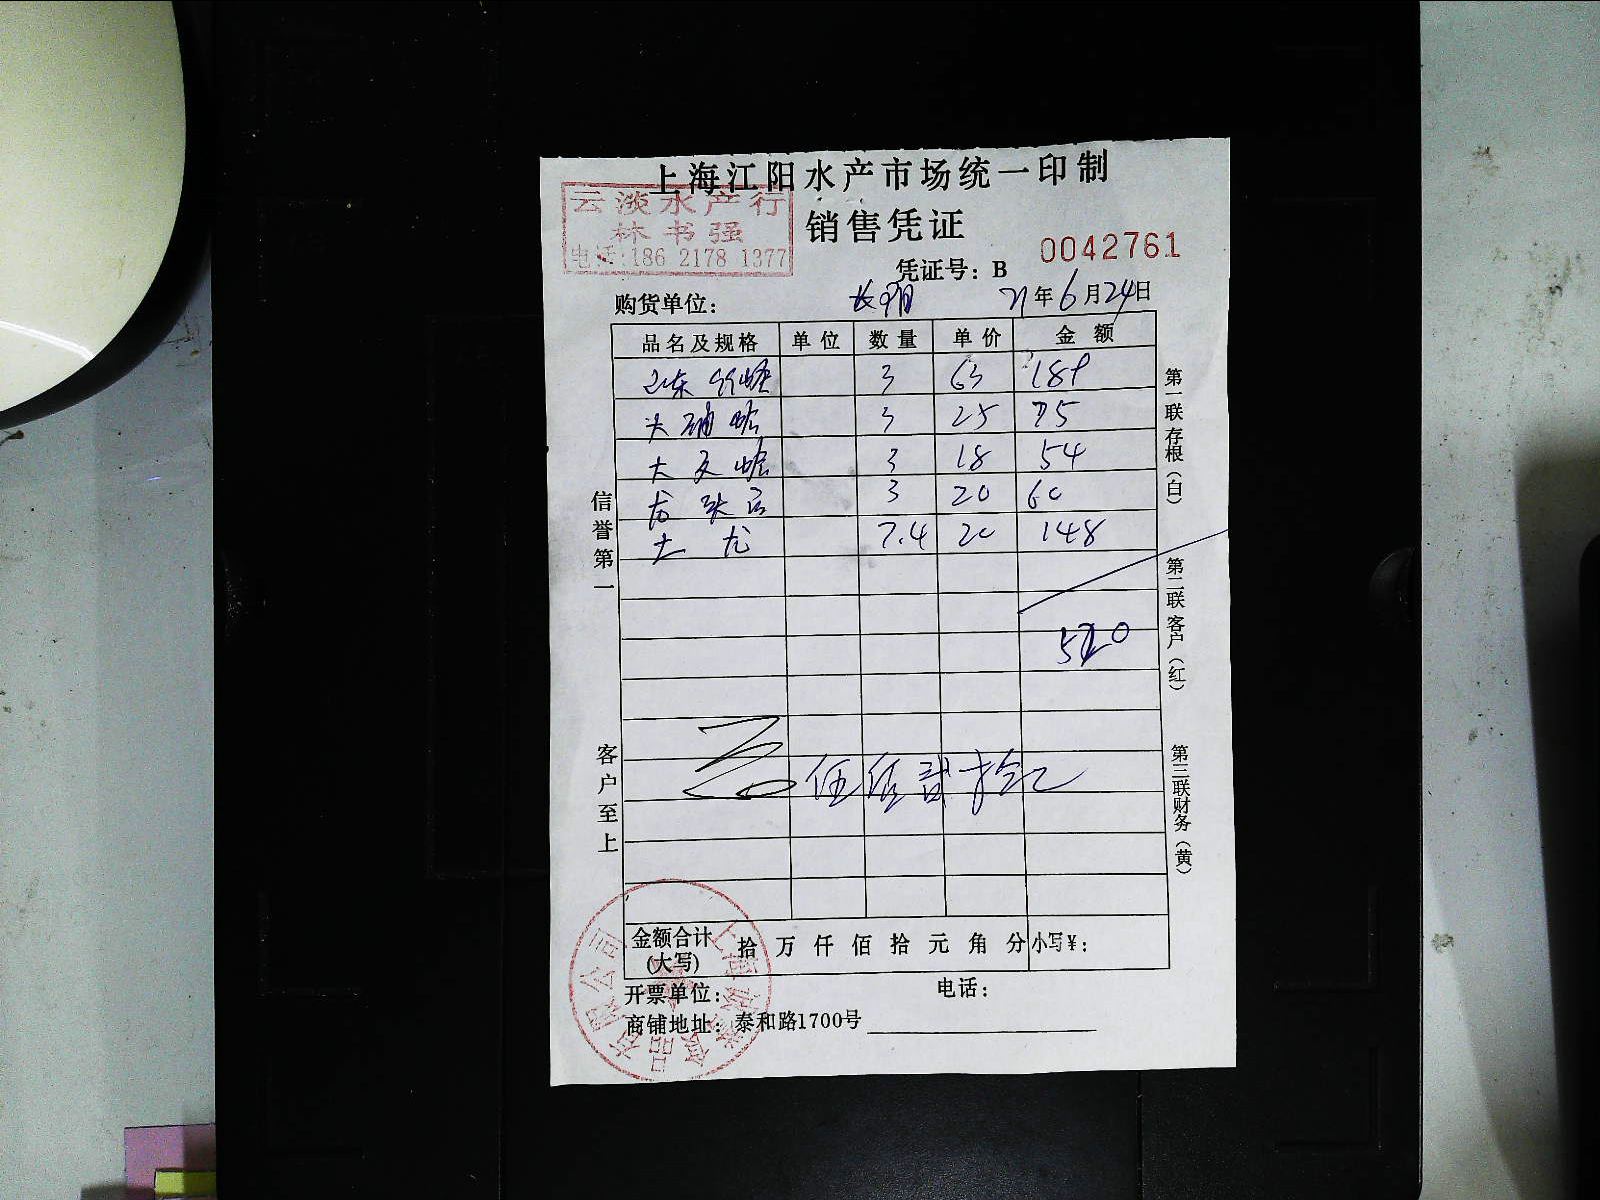 上海江阳水产市场统一印制
云淡水产行
林书强
电话:186 2178 1377
销售凭证
凭证号：B 0042761
购货单位： 21年6月24日
品名及规格 单位 数量 单价 金额
3 63 189
3 25 75
大文蛤 3 18 54
3 20 60
大 7.4 20 148
520
伍佰贰拾元
金额合计(大写) 拾 万 仟 佰 拾 元 角 分 小写¥：
开票单位： 电话：
商铺地址：泰和路1700号
信誉第一
客户至上
第一联存根（白）
第二联客户（红）
第三联财务（黄）